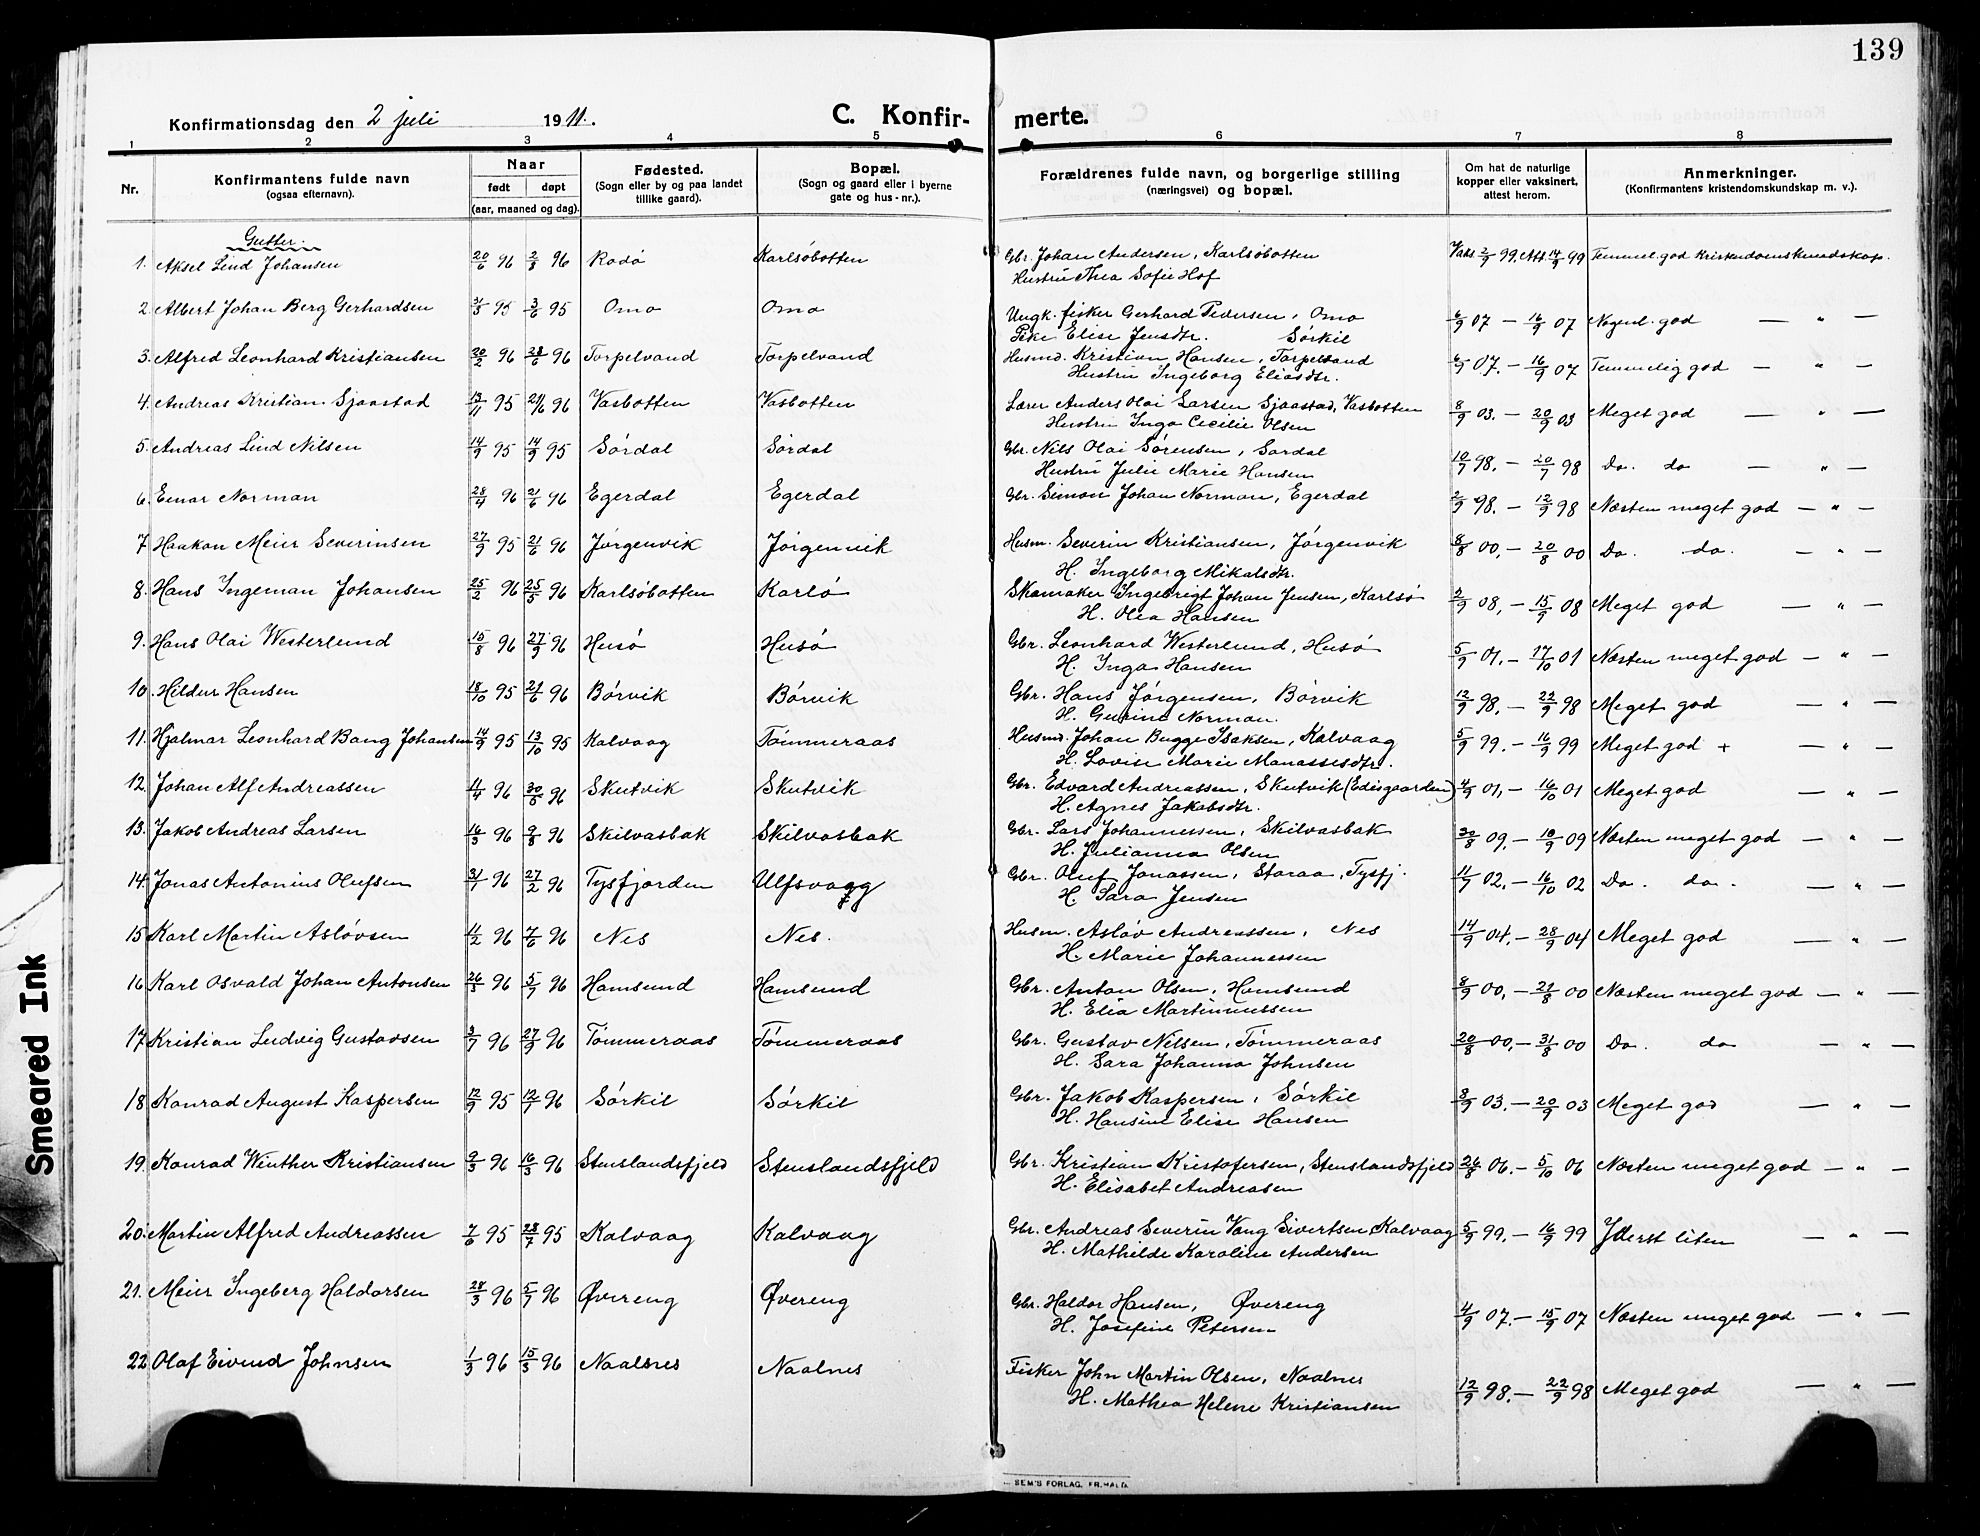 139
Konfirmationsdag den 2 juli 1911. C. Konfirmerte.
1 2 3 4 5 6 7 8
Nr. Konfirmantens fulde navn (ogsaa efternavn). Naar født døpt (aar, maaned og dag). Fødested. (Sogn eller by og paa landet tillike gaard). Bopæl. (Sogn og gaard eller i byerne gate og hus-nr.). Forældrenes fulde navn, og borgerlige stilling (næringsvei) og bopæl. Om hat de naturlige kopper eller vaksinert, attest herom. Anmerkninger. (Konfirmantens kristendomskundskap m. v.).
Gutter.
1. Aksel Lind Johansen 20/6 96 2/8 96 Rodö Karlsöbotten Gbr. Johan Andersen, Karlsöbotten Vaks 2/9 99. Att 14/9 99 Temmel. god Kristendomskundskap.
Hustru Thea Sofie Hof
2. Albert Johan Berg Gerhardsen 31/3 95 3/6 95 Omo Omo Ungk. fisker Gerhard Pedersen, Omo 6/9 07 — 16/9 07 Nogenl. god — " —
Pike Elise Jensdtr. Sörkil
3. Alfred Leonhard Kristiansen 20/2 96 28/6 96 Torpelvand Torpelvand Husmd. Kristian Hansen, Torpelvand 6/9 07. — 16/9 07 Temmelig god — " —
Hustru Ingeborg Eliasdtr.
4. Andreas Kristian Sjaastad 13/11 95 21/6 96 Vasbotten Vasbotten Lærer Anders Olai Larsen Sjaastad, Vasbotten 8/9 03. — 20/9 03 Meget god — " —
Hustru Inga Cecilie Olsen
5. Andreas Lind Nilsen 14/9 95 14/9 95 Sördal Sördal Gbr. Nils Olai Sörensen, Sördal 10/7 98. — 20/7 98 Do. do — " —
Hustru Julie Marie Hansen
6. Einar Norman 28/4 96 21/6 96 Egerdal Egerdal Gbr. Simon Johan Norman, Egerdal 2/9 98. — 12/9 98 Næsten meget god — " —
7 Haakon Meier Severinsen 27/9 95 21/6 96 Jörgenvik Jörgenvik Husm. Severin Kristiansen, Jörgenvik 8/8 00, — 20/8 00 Do. do. — " —
H. Ingeborg Mikalsdtr.
8. Hans Ingeman Johansen 25/2 96 25/5 96 Karlsöbotten Karlö Skomaker Ingebrigt Johan Jensen, Karlsö 2/9 08, — 15/9 08 Meget god — " —
H. Olea Hansen
9. Hans Olai Westerlund 15/8 96 27/9 96 Husö Husö Gbr. Leonhard Westerlund, Husö 5/9 01. — 17/10 01 Næsten meget god — " —
H. Inga Hansen
10. Hildur Hansen 18/10 95 21/6 96 Börvik Börvik Gbr. Hans Jörgensen, Börvik 12/9 98, — 22/9 98 Meget god — " —
H. Gurine Norman.
11. Hjalmar Leonhard Bang Johansen 14/9 95 13/10 95 Kalvaag Tömmeraas Husmd. Johan Bugge Isaksen, Kalvaag 5/9 99. — 16/9 99 Meget god + — " —
H. Lovise Marie Manassesdtr.
12. Johan Alf Andreassen 11/4 96 30/5 96 Skutvik Skutvik Gbr. Edvard Andreassen, Skutvik (Edisgaarden) 4/9 01, — 16/10 01 Meget god — " —
H. Agnes Jakobsdtr.
13. Jakob Andreas Larsen 16/3 96 9/8 96 Skilvasbak Skilvasbak Gbr. Lars Johannessen, Skilvasbak 30/8 09. — 10/9 09 Næsten meget god — " —
H. Julianna Olsen
14. Jonas Antonius Olufsen 31/1 96 27/2 96 Tysfjorden Ulfsvagg Gbr. Oluf Jonassen, Storaa, Tysfj. 11/7 02. — 16/10 02 Do. do. — " —
H. Sara Jensen
15 Karl Martin Aslövsen 11/2 96 7/6 96 Nes Nes. Husm. Aslöv Andreassen, Nes 14/9 04. — 28/9 04 Meget god — " —
H. Marie Johannessen
16 Karl Osvald Johan Antonsen 26/3 96 5/7 96 Hamsund Hamsund Gbr. Anton Olsen, Hamsund 8/9 00, — 21/8 00 Næsten meget god — " —
H. Elia Martinussen
17 Kristian Ludvig Gustavsen 3/7 96 27/9 96 Tömmeraas Tömmeraas Gbr. Gustav Nilsen, Tömmeraas 20/8 00, — 31/8 00 Do. do — " —
H. Sara Johanna Johnsen
18 Konrad August Kaspersen 12/9 95 12/1 96 Sörkil Sörkil Gbr. Jakob Kaspersen, Sörkil 8/9 03. — 20/9 03 Meget god — " —
H. Hansine Elise Hansen
19. Konrad Winther Kristiansen 9/3 96 16/3 96 Stenslandsfjeld Stenslandsfjeld Gbr. Kristian Kristofersen, Stenslandsfjeld 26/8 06. — 5/10 06 Næsten meget god — " —
H. Elisabet Andreasen
20. Martin Alfred Andreassen 7/6 95 28/7 95 Kalvaag Kalvaag Gbr. Andreas Severin Vang Sivertsen Kalvaag 5/9 99. — 16/9 99 Yderst liten — " —
H. Mathilde Karoline Andersen
21. Meier Ingeberg Haldorsen 28/3 96 5/7 96 Øvereng Øvereng Gbr. Haldor Hansen, Øvereng 4/9 07. — 15/9 07 Næsten meget god — " —
H. Josefine Petersen
22 Olaf Eivind Johnsen 1/3 96 15/3 96 Naalsnes Naalnes Fisker John Martin Olsen, Naalnes 12/9 98. — 22/9 98 Meget god — " —
H. Mathea Helene Kristiansen
SEM'S FORLAG, FR.HALD.
Smeared Ink